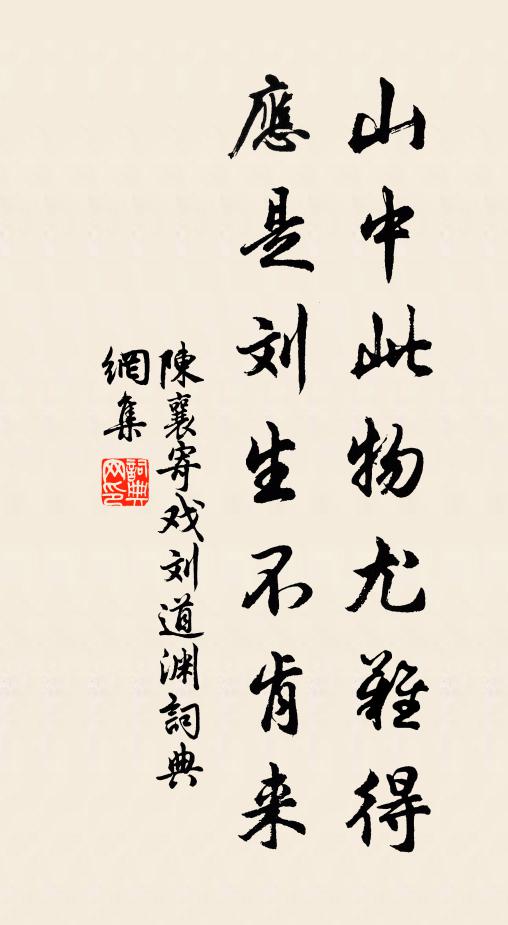 山中此物尤難得
應是刘生不肯来
陳襄寄戏刘道渊詞典
網集
詞典网印